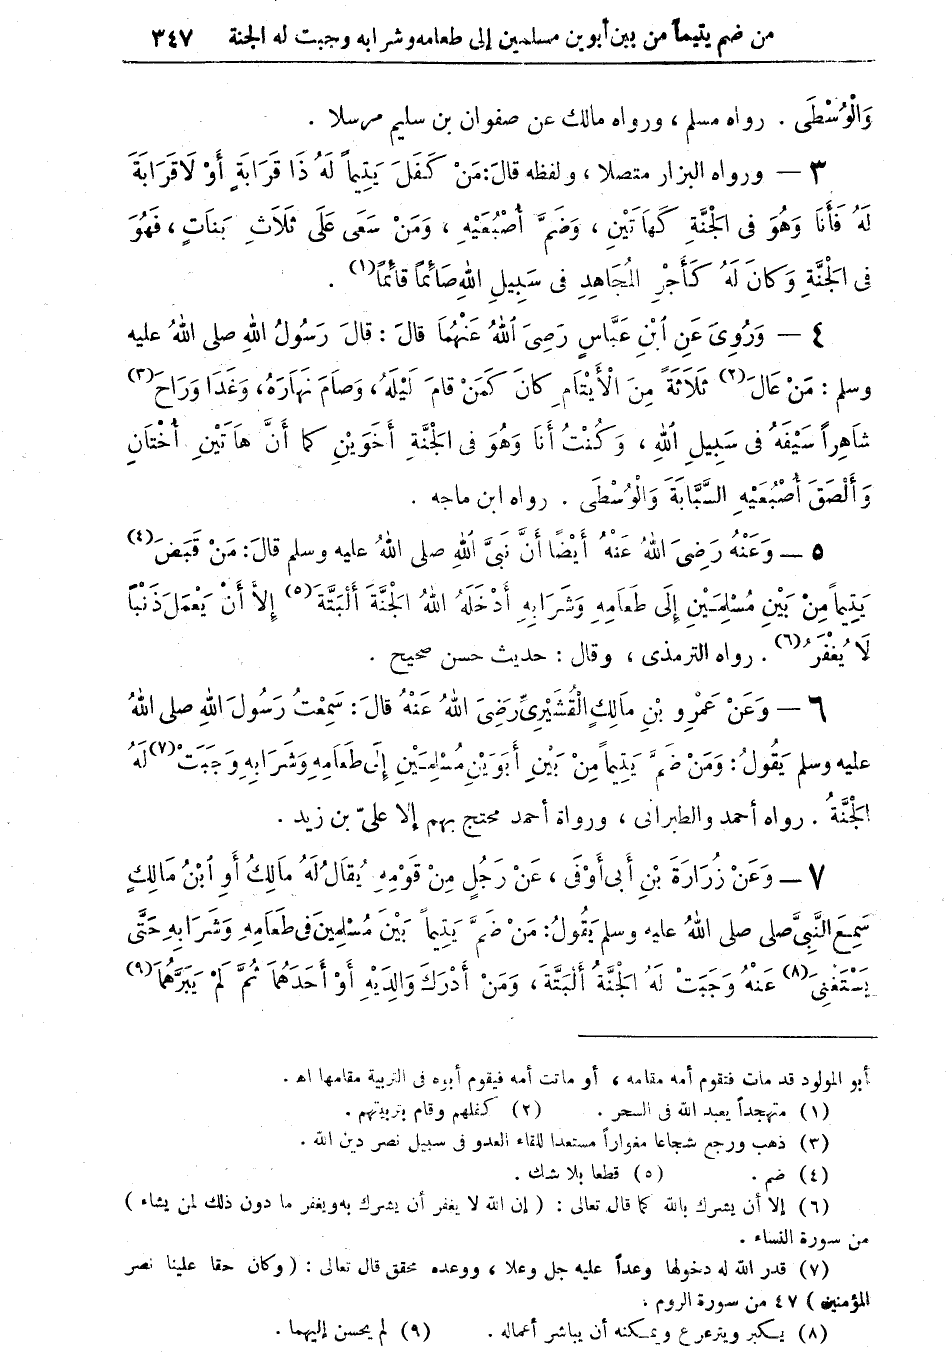 من ضم يتيماً من بين أبوين مسلمين إلى طعامه وشرابه وجبت له الجنة ٣٤٧
وَالْوُسْطَى . رواه مسلم ، ورواه مالك عن صفوان بن سليم مرسلا .
٣ — ورواه البزار متصلا ، ولفظه قالَ: مَنْ كَفَلَ يَتِيماً لَهُ ذَا قَرَابَةٍ أَوْ لَا قَرَابَةَ
لَهُ فَأَنَا وَهُوَ فى الْجَنَّةِ كَهَاتَيْنِ ، وَضَمَّ أُصْبُعَيْهِ ، وَمَنْ سَعَى عَلَى ثَلَاثِ بَنَاتٍ ، فَهُوَ
فى الْجَنَّةِ وَكانَ لَهُ كَأَجْرِ الْمُجَاهِدِ فى سَبِيلِ اللهِ صَائِمًا قائِمًا (١) .
٤ — وَرُوِىَ عَنِ ابْنِ عَبَّاسٍ رَضِىَ اللهُ عَنْهُمَا قالَ : قالَ رَسُولُ اللهِ صلى اللهُ عليه
وسلم : مَنْ عَالَ (٢) ثَلَاثَةً مِنَ الْأَيْتَامِ كانَ كَمَنْ قامَ لَيْلَهُ ، وَصَامَ نَهَارَهُ ، وَغَدَا وَرَاحَ (٣)
شاهِراً سَيْفَهُ فى سَبِيلِ اللهِ ، وَكُنْتُ أَنَا وَهُوَ فى الْجَنَّةِ أَخَوَيْنِ كما أَنَّ هَاتَيْنِ أُخْتَانِ
وَأَلْصَقَ أُصْبُعَيْهِ السَّبَّابَةَ وَالْوُسْطَى . رواه ابن ماجه .
٥ — وَعَنْهُ رَضِىَ اللهُ عَنْهُ أَيْضًا أَنَّ نَبِىَّ اللهِ صلى اللهُ عليه وسلم قالَ: مَنْ قَبَضَ (٤)
يَتِيماً مِنْ بَيْنِ مُسْلِمَيْنِ إِلَى طَعَامِهِ وَشَرَابِهِ أَدْخَلَهُ اللهُ الْجَنَّةَ أَلْبَتَّةَ (٥) إِلاَّ أَنْ يَعْمَلَ ذَنْبًا
لَا يُغْفَرُ (٦) . رواه الترمذى ، وقال : حديث حسن صحيح .
٦ — وَعَنْ عَمْرِو بْنِ مَالِكٍ الْقُشَيْرِىِّ رَضِىَ اللهُ عَنْهُ قالَ : سَمِعْتُ رَسُولَ اللهِ صلى اللهُ
عليه وسلم يَقُولُ : وَمَنْ ضَمَّ يَتِيماً مِنْ بَيْنِ أَبَوَيْنِ مُسْلِمَيْنِ إِلَى طَعَامِهِ وَشَرَابِهِ وَجَبَتْ (٧) لَهُ
الْجَنَّةُ . رواه أحمد والطبرانى ، ورواة أحمد محتج بهم إلا علىّ بن زيد .
٧ — وَعَنْ زُرَارَةَ بْنِ أَبى أَوْفَى ، عَنْ رَجُلٍ مِنْ قَوْمِهِ يُقَالُ لَهُ مَالِكُ أَوِ ابْنُ مَالِكٍ
سَمِعَ النَّبِىَّ صلى صلى اللهُ عليه وسلم يَقُولُ : مَنْ ضَمَّ يَتِيماً بَيْنَ مُسْلِمَيْنِ فى طَعَامِهِ وَشَرَابِهِ حَتَّى
يَسْتَغْنِىَ (٨) عَنْهُ وَجَبَتْ لَهُ الْجَنَّةُ أَلْبَتَّةَ ، وَمَنْ أَدْرَكَ وَالِدَيْهِ أَوْ أَحَدَهُمَا ثُمَّ لَمْ يَبَرَّهُمَا (٩)
أبو المولود قد مات فتقوم أمه مقامه ، أو ماتت أمه فيقوم أبوه فى التربية مقامها اهـ .
(١) متهجداً يعبد الله فى السحر . (٢) كفلهم وقام بتربيتهم .
(٣) ذهب ورجع شجاعا مغواراً مستعدا للقاء العدو فى سبيل نصر دين الله .
(٤) ضم . (٥) قطعا بلا شك .
(٦) إلا أن يشرك بالله كما قال تعالى : ( إن الله لا يغفر أن يشرك به ويغفر ما دون ذلك لمن يشاء )
من سورة النساء .
(٧) قدر الله له دخولها وعداً عليه جل وعلا ، ووعده محقق قال تعالى : ( وكان حقا علينا نصر
المؤمنين ) ٤٧ من سورة الروم .
(٨) يكبر ويترعرع ويمكنه أن يباشر أعماله . (٩) لم يحسن إليهما .